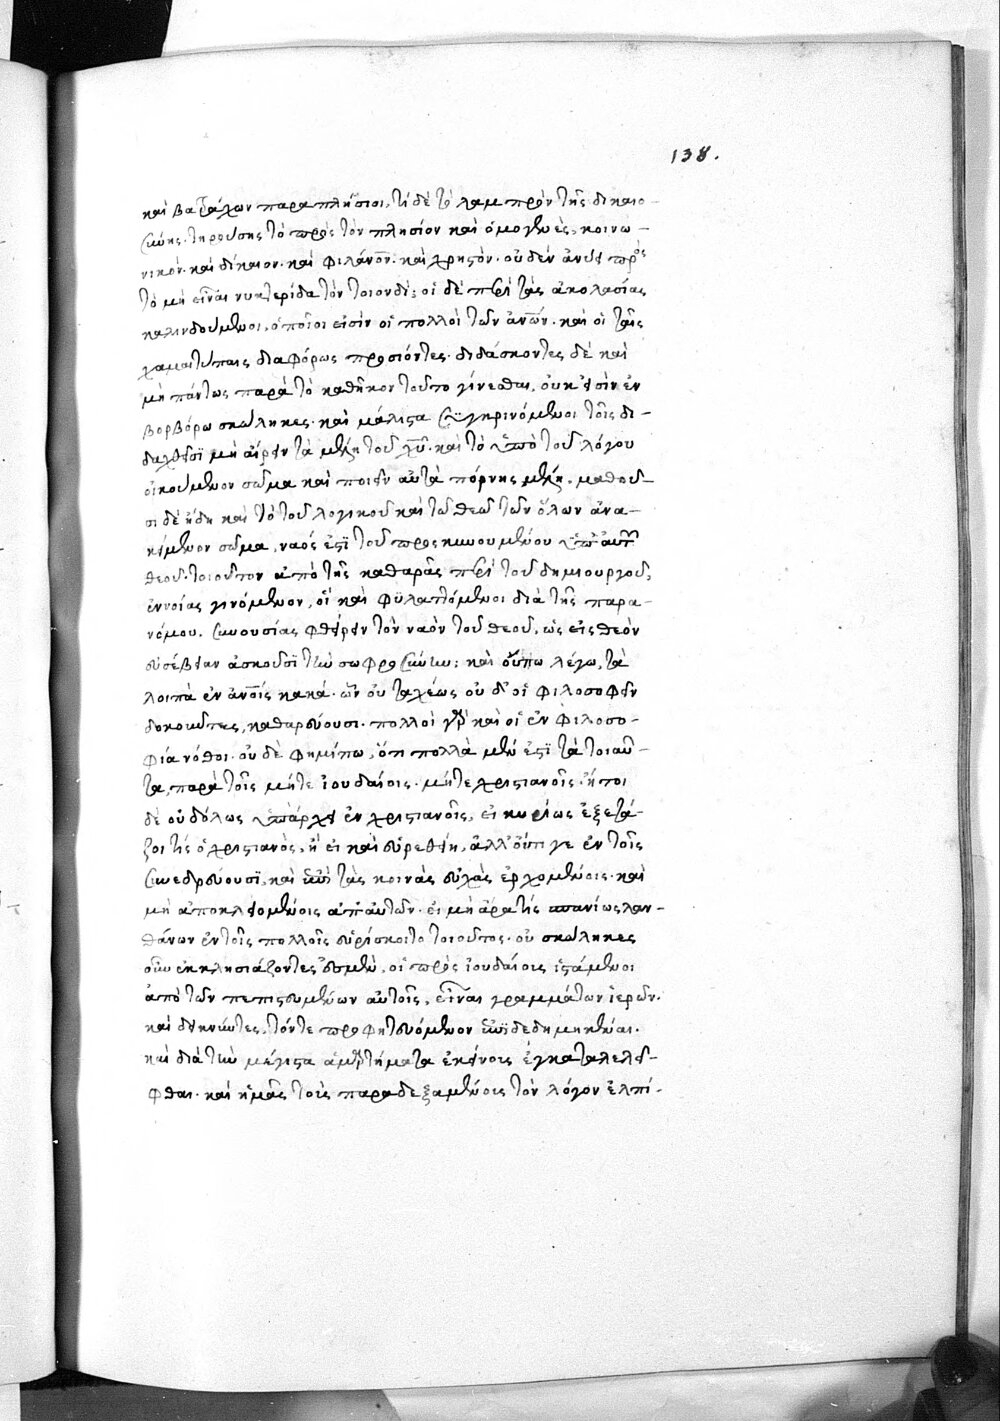 138.
καὶ βατράχων παραπλήσιοι, τί δὲ τὸ λαμπρὸν τῆς δικαιο-
σύνης. τηρούσης τὸ πρὸς τὸν πλησίον καὶ ὁμογενὲς, κοινω-
νικόν. καὶ δίκαιον. καὶ φιλάνον. καὶ χρηστὸν. οὐδὲν ἀνύει πρὸς
τὸ μὴ εἶναι νυκτερίδα τὸν τοιονδί; οἱ δὲ περὶ τὰς ἀκολασίας
καλινδούμενοι, ὁποῖοι εἰσὶν οἱ πολλοὶ τῶν ἀνων. καὶ οἱ ταῖς
χαμαιτύπαις διαφόρως προσιόντες. διδάσκοντες δὲ καὶ
μὴ πάντως παρὰ τὸ καθῆκον τοῦτο γίνεσθαι, οὐκ εἰσὶν ἐν
βορβόρω σκώληκες. καὶ μάλιστα συγκρινόμενοι τοῖς δι-
δαχθεῖσι μὴ αἴρειν τὰ μέλη τοῦ χυ. καὶ τὸ ὑπὸ τοῦ λόγου
οἰκούμενον σῶμα καὶ ποιεῖν αὐτὰ πόρνης μέλη. μαθοῦ-
σι δὲ ἤδη καὶ τὸ τοῦ λογικοῦ καὶ τῶ θεῶ τῶν ὅλων ἀνα-
κείμενον σῶμα, ναός ἐστι τοῦ προσκυνουμένου ὑπ' αὐτῶν
θεοῦ. τοιοῦτον ἀπὸ τῆς καθαρᾶς περὶ τοῦ δημιουργοῦ,
ἐννοίας γινόμενον, οἳ καὶ φυλαττόμενοι διὰ τῆς παρα-
νόμου. συνουσίας φθείρειν τὸν ναὸν τοῦ θεοῦ, ὡς εἰς θεὸν
εὐσέβειαν ἀσκοῦσι τὴν σωφροσύνην; καὶ οὔπω λέγω, τὰ
λοιπὰ ἐν ἀνοις κακά. ὧν οὐ ταχέως οὐδ' οἱ φιλοσοφεῖν
δοκοῦντες, καθαρεύουσι. πολλοὶ γὰρ καὶ οἱ ἐν φιλοσο-
φία νόθοι. οὐδὲ φημίπω, ὅτι πολλὰ μέν ἐστι τὰ τοιαῦ-
τα, παρὰ τοῖς μήτε ἰουδαίοις. μήτε χριστιανοῖς. ἤτοι
δὲ οὐδόλως ὑπάρχει ἐν χριστιανοῖς, εἰ κυρίως ἐξετά-
ζοι τίς ὁ χριστιανὸς, ἢ εἰ καὶ εὑρεθείη, ἀλλ' οὔτι γε ἐν τοῖς
συνεδρεύουσι, καὶ ἐπὶ τὰς κοινὰς εὐχὰς ἐρχομένοις. καὶ
μὴ ἀποκλειομένοις ἀπ' αὐτῶν. εἰ μὴ ἄρα τίς σπανίως λαν-
θάνων ἐν τοῖς πολλοῖς εὑρίσκοιτο τοιοῦτος. οὐ σκώληκες
οὖν ἐκκλησιάζοντες ἐσμὲν, οἱ πρὸς ἰουδαίοις ἱστάμενοι
ἀπὸ τῶν πεπιστευμένων αὐτοῖς, εἶναι γραμμάτων ἱερῶν.
καὶ δεικνύντες, τόντε προφητευόμενον ἐπιδεδημηκέναι.
καὶ διὰ τὰ μέγιστα ἁμαρτήματα ἐκείνοις ἐγκαταλελεῖ-
φθαι. καὶ ἡμᾶς τοὺς παραδεξαμένοις τὸν λόγον ἐλπί-